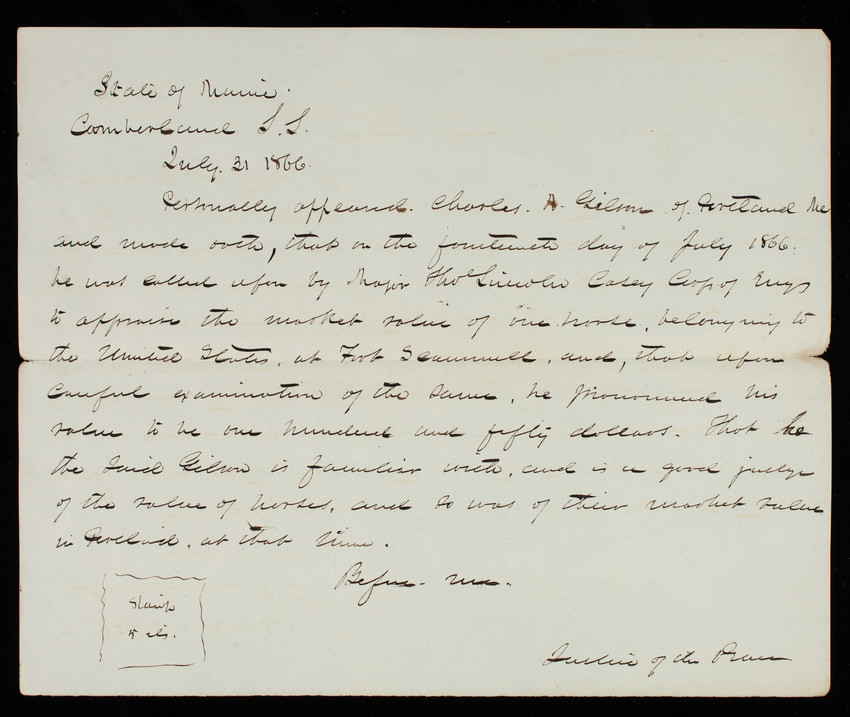 State of Maine.
Cumberland S.S.
July. 31 1866.
Personally appeared. Charles. A. Gilson of Portland Me
and made oath, that on the fourteenth day of July 1866.
he was called upon by Major Thos Lincoln Casey Corps of Engs
to appraise the market value of one horse, belonging to
the United States, at Fort Scammell, and, that upon
careful examination of the same, he pronounced his
value to be one hundred and fifty dollars. That he
the said Gilson is familiar with, and is a good judge
of the value of horses, and so was of their market value
in Portland, at that time.
Before me.
Stamp
5 cts.
Justice of the Peace